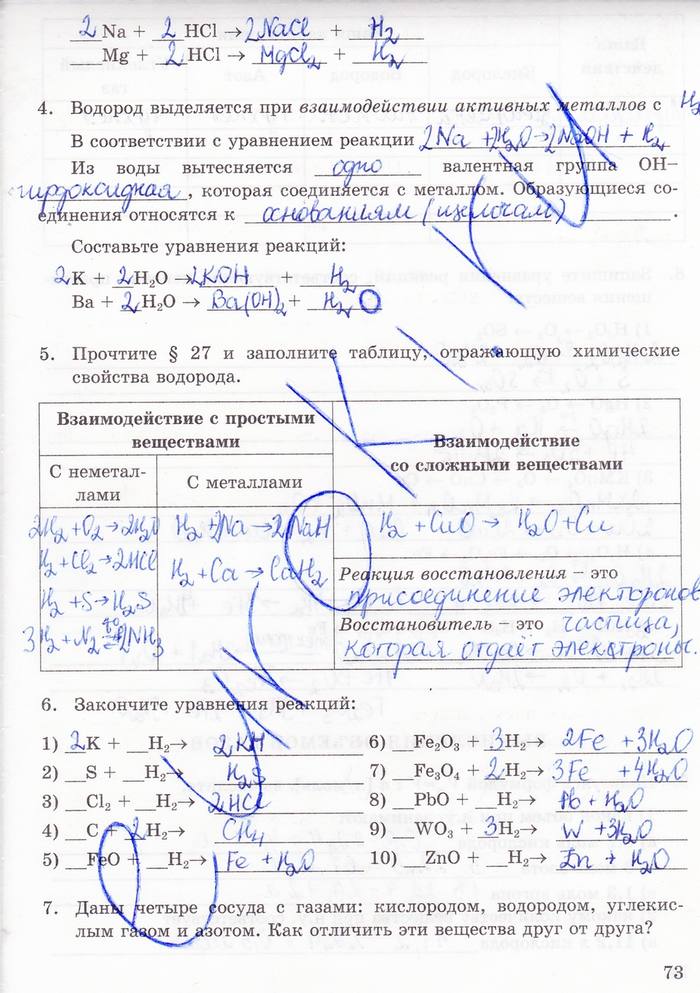 2 Na + 2 HCl → 2NaCl + H₂
Mg + 2 HCl → MgCl₂ + H₂
4. Водород выделяется при взаимодействии активных металлов с H₂
В соответствии с уравнением реакции 2Na + 2H₂O → 2NaOH + H₂
Из воды вытесняется одно валентная группа OH–
гирдоксидная, которая соединяется с металлом. Образующиеся со-
единения относятся к основаниям (щелочам).
Составьте уравнения реакций:
2 K + 2 H₂O → 2KOH + H₂
Ba + 2 H₂O → Ba(OH)₂ + H₂
5. Прочтите § 27 и заполните таблицу, отражающую химические
свойства водорода.
Взаимодействие с простыми
веществами
Взаимодействие
со сложными веществами
С неметал-
лами
С металлами
2H₂+O₂→2H₂O
H₂+Cl₂→2HCl
H₂+S→H₂S
3H₂+N₂⇄2NH₃
H₂+2Na→2NaH
H₂+Ca→CaH₂
H₂+CuO→H₂O+Cu
Реакция восстановления – это
присоединение электоронов
Восстановитель – это частица,
которая отдаёт электроны.
6. Закончите уравнения реакций:
1) 2K + __H₂→ 2KH
2) __S + __H₂→ H₂S
3) __Cl₂ + __H₂→ 2HCl
4) __C + 2H₂→ CH₄
5) __FeO + __H₂→ Fe + H₂O
6) __Fe₂O₃ + 3H₂→ 2Fe + 3H₂O
7) __Fe₃O₄ + 2H₂→ 3Fe + 4H₂O
8) __PbO + __H₂→ Pb + H₂O
9) __WO₃ + 3H₂→ W + 3H₂O
10) __ZnO + __H₂→ Zn + H₂O
7. Даны четыре сосуда с газами: кислородом, водородом, углекис-
лым газом и азотом. Как отличить эти вещества друг от друга?
73